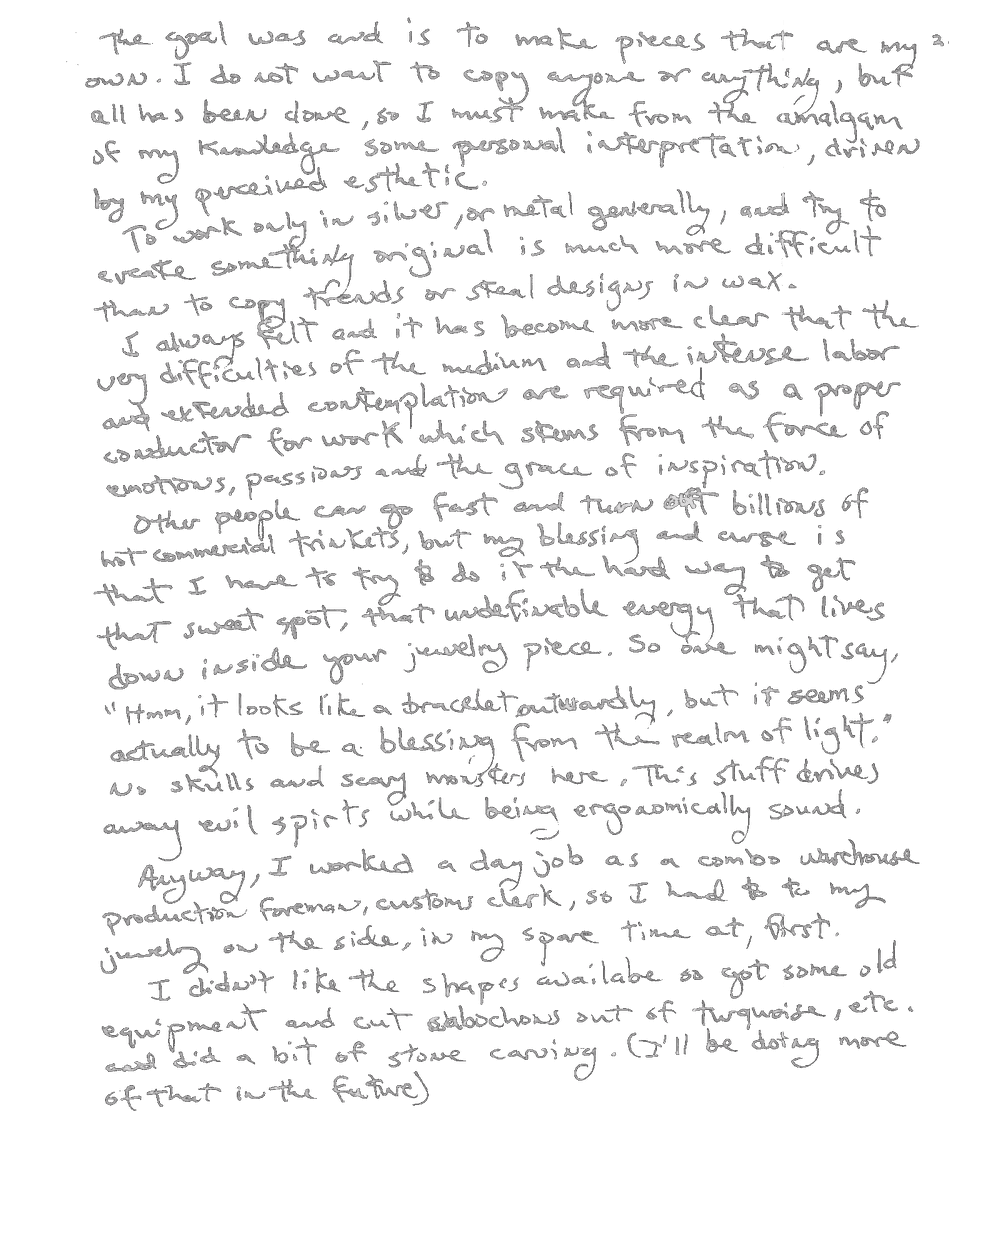 The goal was and is to make pieces that are my 2.
own. I do not want to copy anyone or anything, but
all has been done, so I must make from the amalgam
of my knowledge some personal interpretation, driven
by my perceived esthetic.
To work only in silver, or metal generally, and try to
create something original is much more difficult
than to copy trends or steal designs in wax.
I always felt and it has become more clear that the
very difficulties of the medium and the intense labor
and extended contemplation are required as a proper
conductor for work which stems from the force of
emotions, passions and the grace of inspiration.
Other people can go fast and turn out billions of
hot commercial trinkets, but my blessing and curse is
that I have to try to do it the hard way to get
that sweet spot, that undefinable energy that lives
down inside your jewelry piece. So one might say,
"Hmm, it looks like a bracelet outwardly, but it seems
actually to be a blessing from the realm of light."
No skulls and scary monsters here. This stuff drives
away evil spirts while being ergonomically sound.
Anyway, I worked a day job as a combo warehouse
production foreman, customs clerk, so I had to to my
jewelry on the side, in my spare time at, first.
I didn't like the shapes availabe so got some old
equipment and cut cabochons out of turquoise, etc.
and did a bit of stone carving. (I'll be doing more
of that in the future)